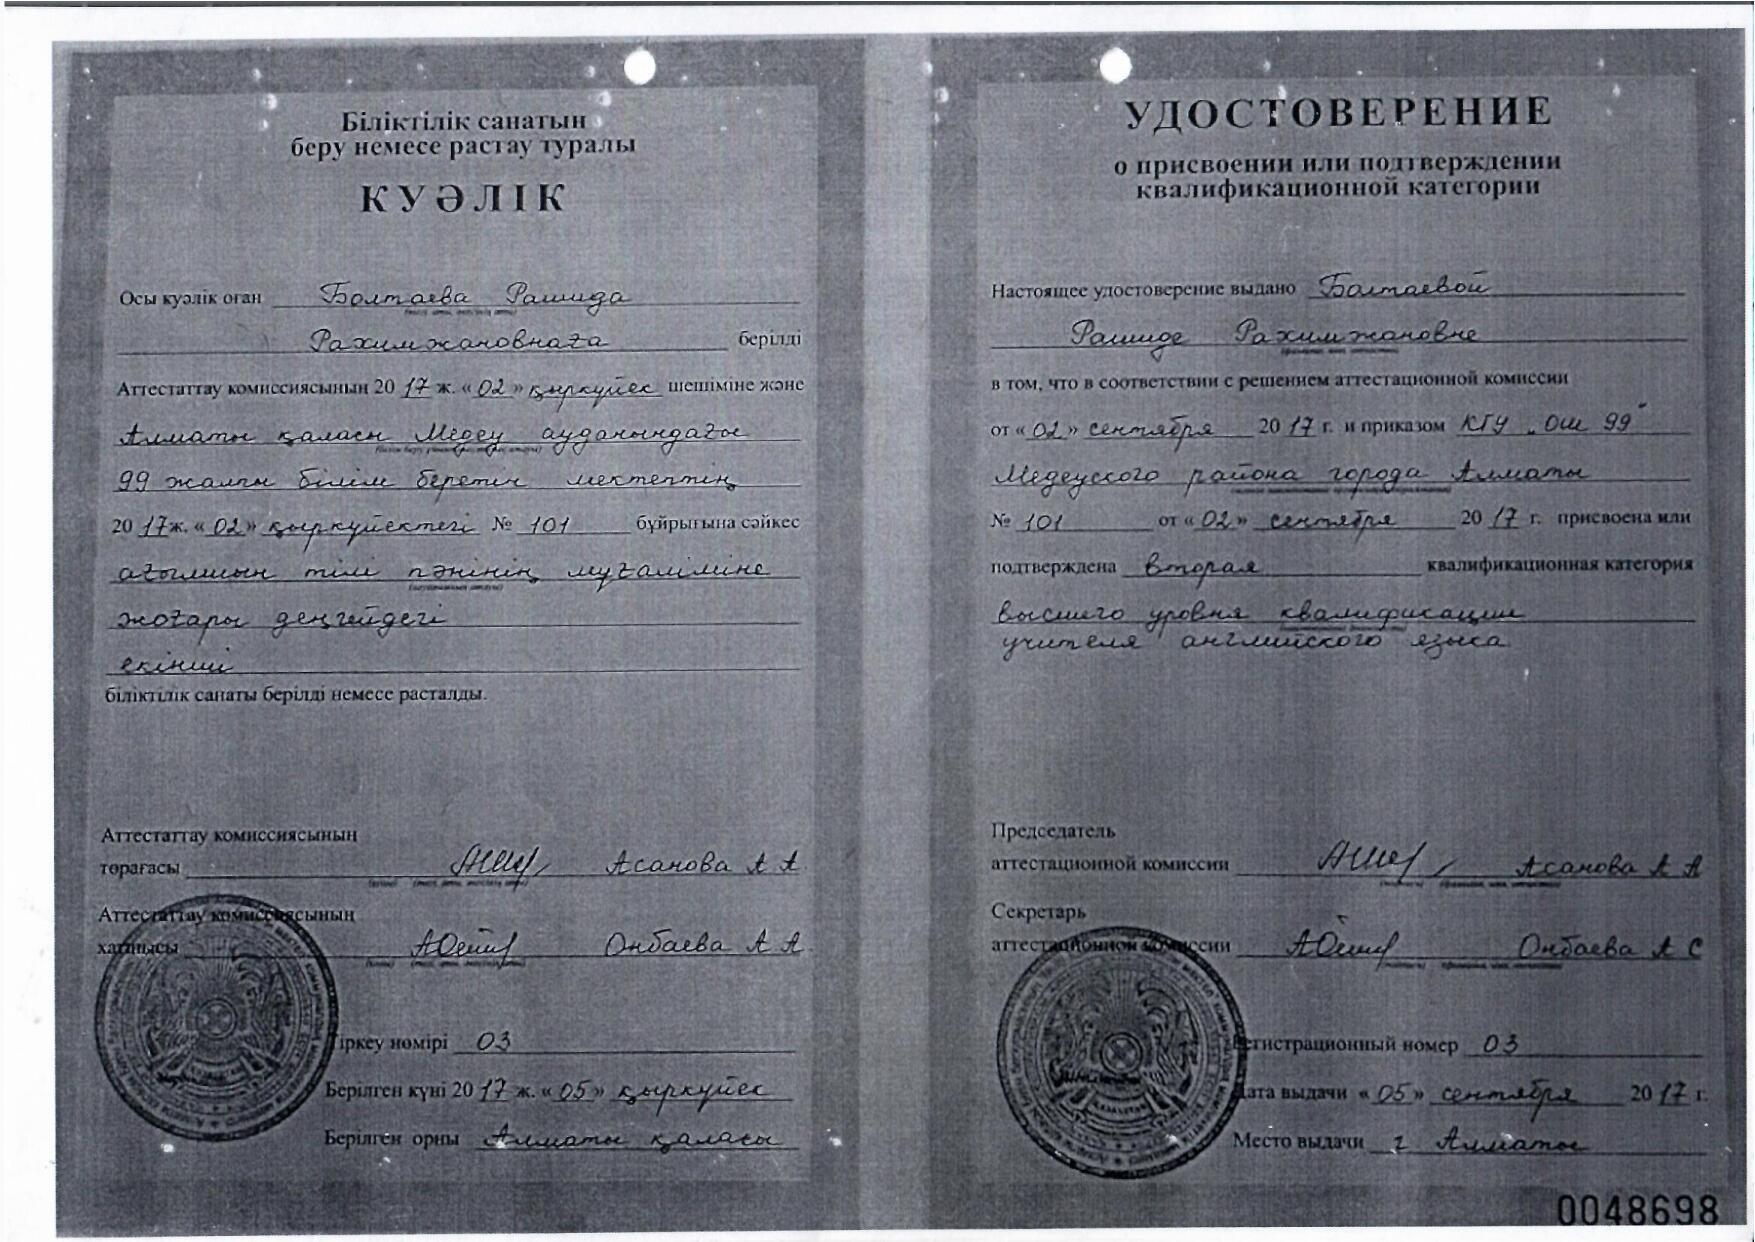 Біліктілік санатын
беру немесе растау туралы
КУӘЛІК
Осы куәлік оған Болтаева Рашида
Рахимжановнаға берілді
Аттестаттау комиссиясының 2017 ж. «02» қыркүйек шешіміне және
Алматы қаласы Медеу ауданындағы
99 жалпы білім беретін мектептің
2017ж. «02» қыркүйектегі № 101 бұйрығына сәйкес
ағылшын тілі пәнінің мұғаліміне
жоғары деңгейдегі
екінші
біліктілік санаты берілді немесе расталды.
Аттестаттау комиссиясының
төрағасы Асанова А А
Аттестаттау комиссиясының
хатшысы Онбаева А А
Тіркеу нөмірі 03
Берілген күні 2017 ж. «05» қыркүйек
Берілген орны Алматы қаласы
УДОСТОВЕРЕНИЕ
о присвоении или подтверждении
квалификационной категории
Настоящее удостоверение выдано Балтаевой
Рашиде Рахимжановне
в том, что в соответствии с решением аттестационной комиссии
от «02» сентября 2017 г. и приказом КГУ „ОШ 99"
Медеуского района города Алматы
№ 101 от «02» сентября 2017 г. присвоена или
подтверждена вторая квалификационная категория
высшего уровня квалификации
учителя английского языка
Председатель
аттестационной комиссии Асанова А А
Секретарь
аттестационной комиссии Онбаева А С
Регистрационный номер 03
Дата выдачи «05» сентября 2017 г.
Место выдачи г Алматы
0048698